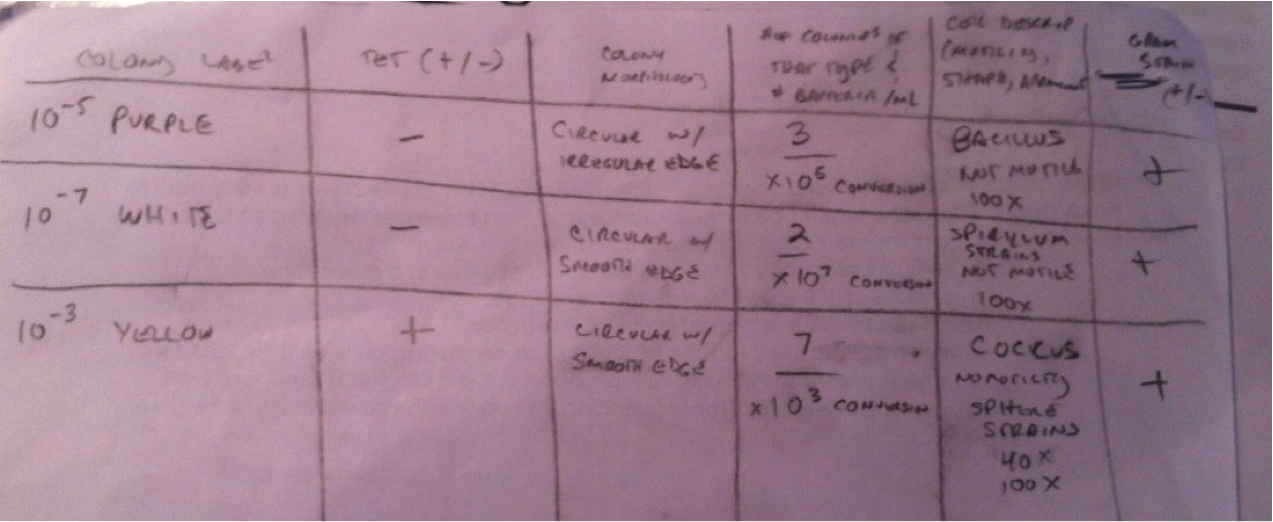 COLONY LABEL
TET (+/-)
COLONY
MORPHOLOGY
# OF COLONIES OF
THAT TYPE &
# BACTERIA /ML
CELL DESCRIP
(MOTILITY,
SHAPE,
GRAM
STAIN
(+/-
10⁻⁵ PURPLE
-
CIRCULAR W/
IRREGULAR EDGE
3
X10⁵ CONVERSION
BACILLUS
NOT MOTILE
100X
+
10⁻⁷ WHITE
-
CIRCULAR W/
SMOOTH EDGE
2
X10⁷ CONVERSION
SPIRYLUM
STRAINS
NOT MOTILE
100X
+
10⁻³ YELLOW
+
CIRCULAR W/
SMOOTH EDGE
7
X10³ CONVERSION
COCKUS
NO MOTILITY
SPHERE
STRAINS
40X
100X
+